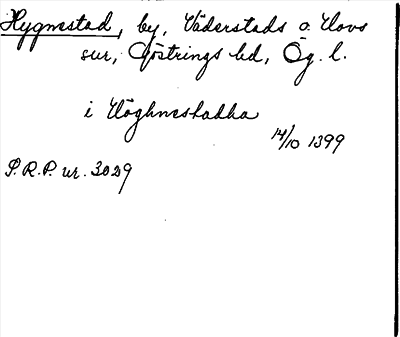 Hygnestad, by, Väderstads o. Hovs
snr, Göstrings hd, Ög. l.
i Höghnestadha
14/10 1399
P.R.P. nr. 3029